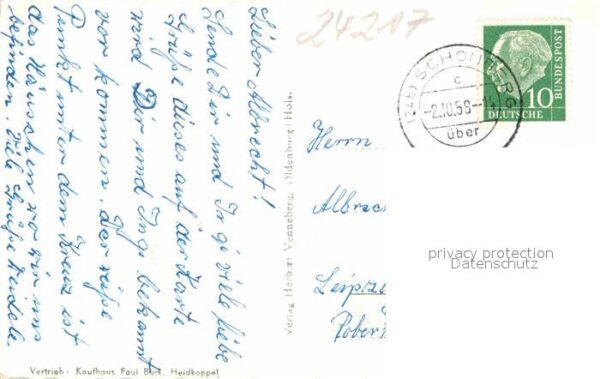 24217
Lieber Albrecht!
Sende Dir und Ingi viele liebe
Grüße dieses auf der Karte
wird Dir und Ingi bekannt
vor kommen. Der weiße
Punkt unter dem Kreuz ist
das Häuschen wo wir uns
befinden. Viele Grüße Heidele
Verlag Herbert Venneberg, Oldenburg/Holst.
Vertrieb: Kaufhaus Paul Heidkoppel
(24b) SCHÖNBERG
c
-2.10.58-14
über
10
DEUTSCHE
BUNDESPOST
Herrn
Albrec
Leipz
Rober
privacy protection
Datenschutz